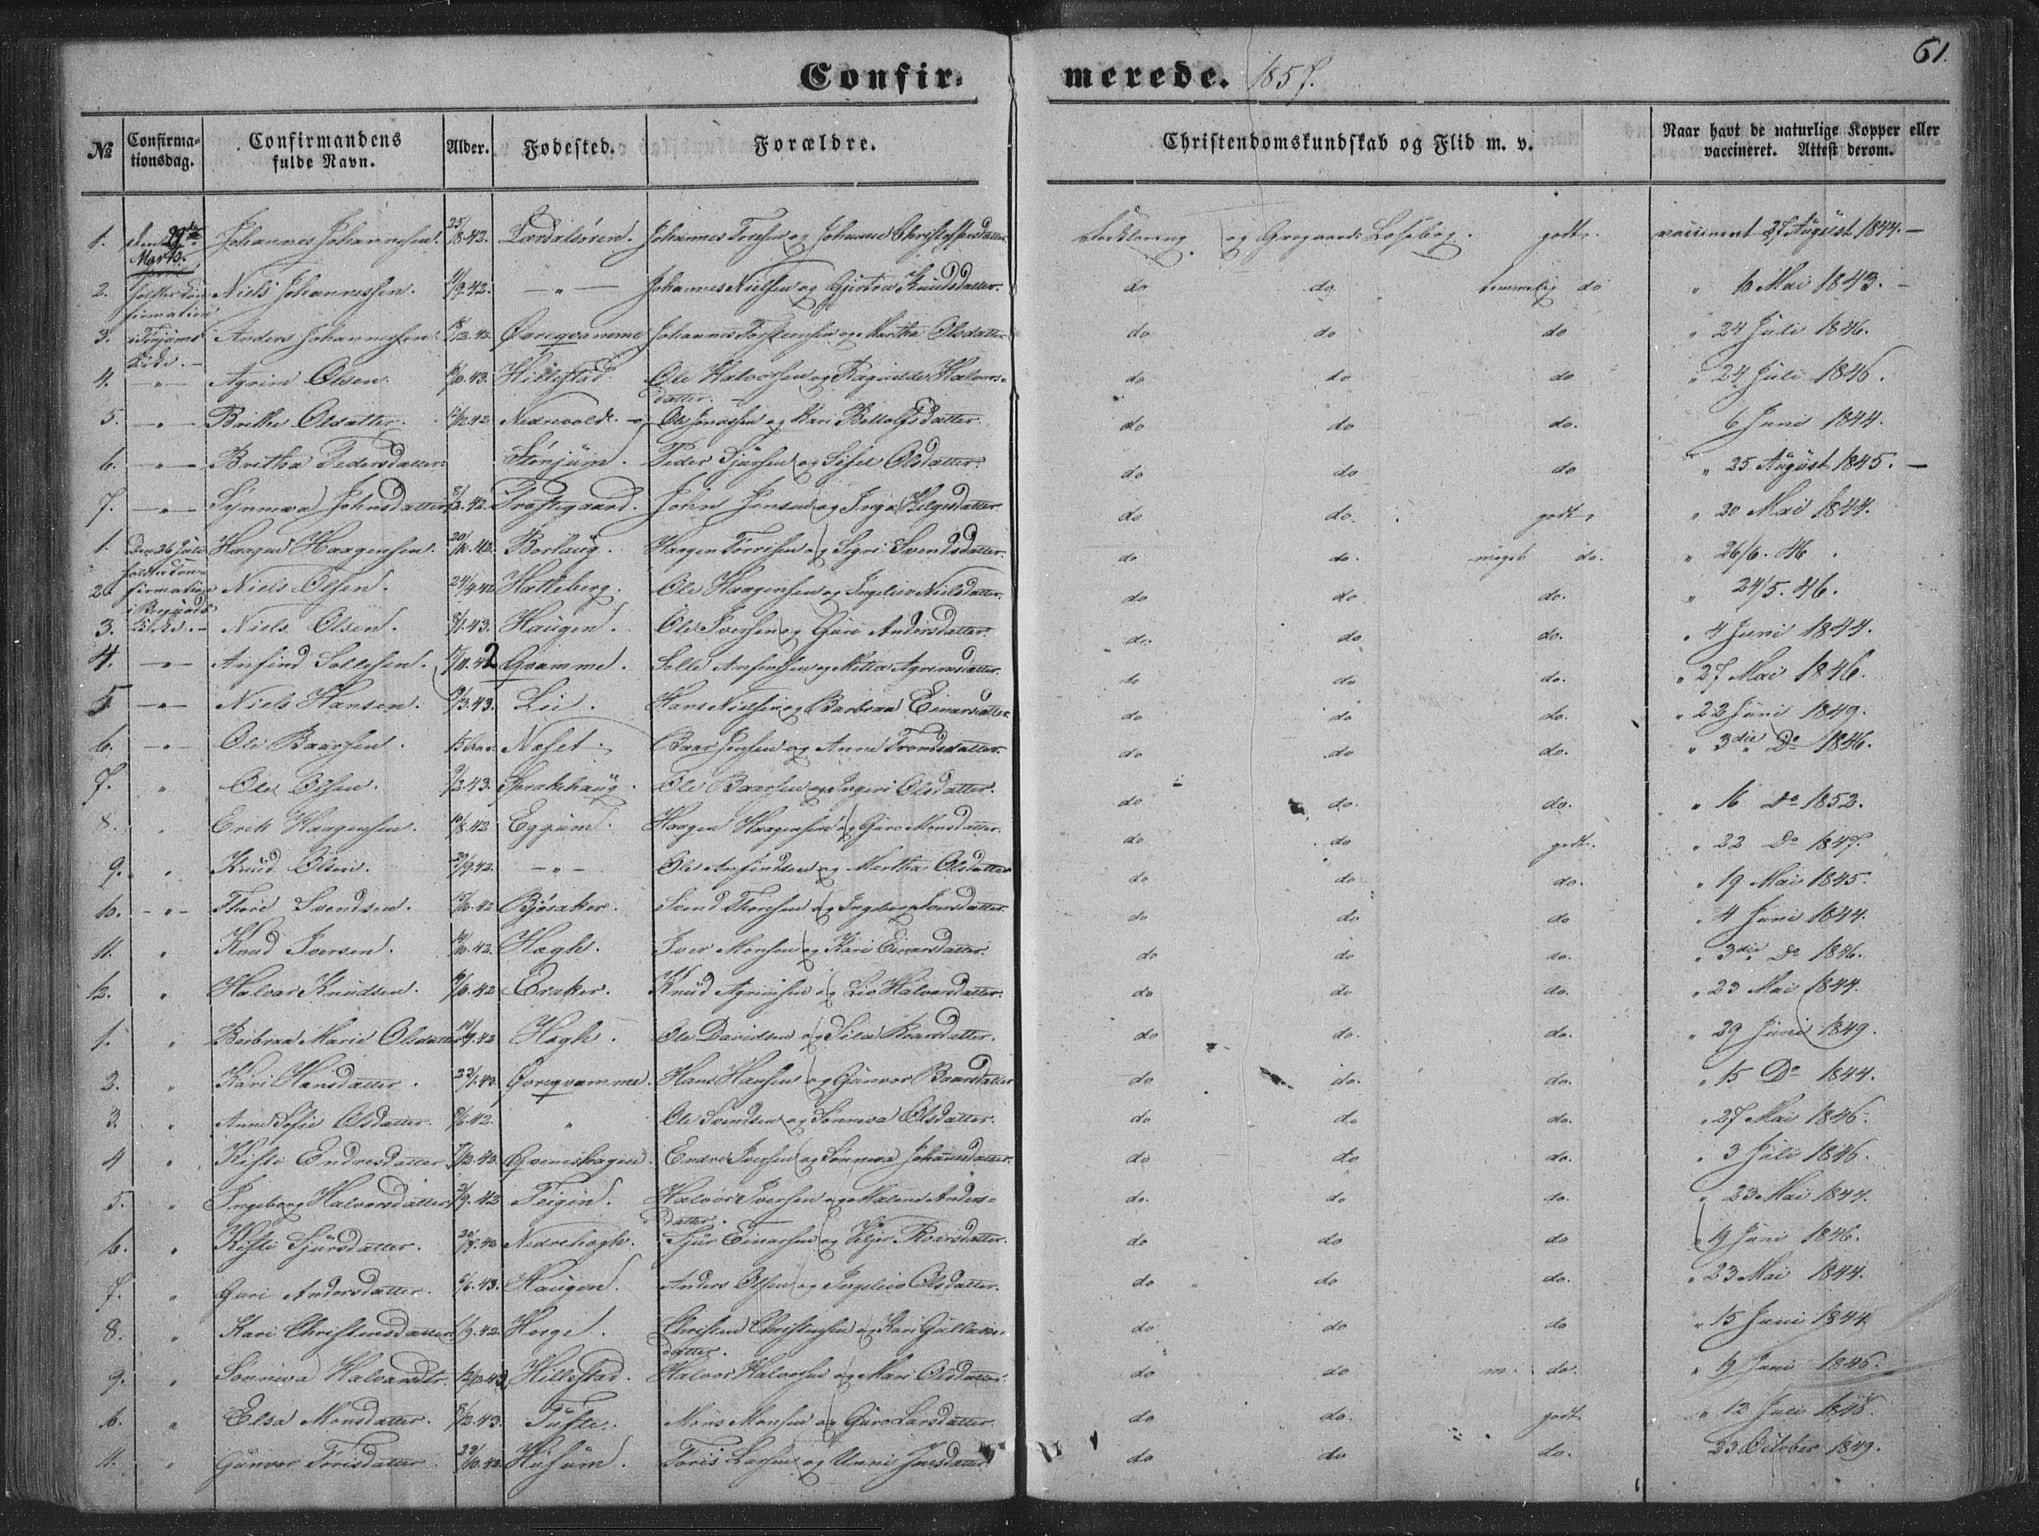 61.
Confirmerede. 1857.
№ Confirmationsdag. Confirmandens fulde Navn. Alder. Fødested. Forældre. Christendomskundskab og Flid m. v. Naar havt de naturlige Kopper eller vaccineret. Attest derom.
1. den 29de Marts. Johannes Johannessen. 25/8.42. Lærdalsøren. Johannes og Johanne Christophersdatter Forklaring og Læsebog. godt. vaccineret 27 August 1844. —
2. holdt Confirmation Niels Johannessen. 4/9.42. — " — Johannes Nielsen og Gjertru Knudsdatter. do do temmelig do " 16 Mai 1843. —
3. i Tønjums Kirke. — Anders Johannessen. Øvreqvamme Johannes og Martha Olsdatter do do do " 24 Juli 1846.
4. — " — Agrim Olsen. 6/10.43. Hillestad. Ole Halvorsen og Ragnilde Halvorsdatter. — do do do " 24 Juli 1846.
5. — " — Brithe Olsatter. 12/12.42. Nedrevold. Ole Jonassen og Kari Bottolfsdatter. do do do. 6 Juni 1844.
6. — " — Britha Pedersdatter. Stønjum. Peder Sjursen og Sissel Olsdatter. do do do " 25 August 1845. —
7. — " — Synneva Johnsdatter 8/2.42. Trostegaard. John Jensen og Inga Helgesdatter do do. godt. " 20 Mai 1844.
1. Den 26 Juli Haagen Haagensen. 20/10.42. Borlaug. Haagen Torrisen og Sigri Svendsdatter. do do. meget do. " 26/6. 46.
2. holdt Confirmation Niels Olsen. 24/9.42 Hatleberg. Ole Haagensen og Ingeleiv Nielsdatter. do do do. " 24/5. 46.
3. i Borgunds Kirke. — Niels Olsen. 8/1.43. Haugen. Ole Iversen og Guri Andersdatter. do. do do. " 4 Juni 1844.
4. — " — Anfind Sollesen. 17/11.42 Qvamme. Solle Anfinsen og Mitta Agrimsdatter. do do do. " 27 Mai 1846.
5 — " — Niels Hansen. 9/3.43. Lii. Hans Nielsen og Barbraa Einarsdatter do do do. " 22 Juni 1849.
6. — " — Ole Baarsen. Næset. Baar Jensen og Anne Trondsdatter. do do do. " 3die Do 1846.
7. " Ole Olsen. 9/2.43. Sprakehaug. Ole Baarsen og Ingeri Olsdatter. do do. do. " 16 Do 1852.
8. " Erik Haagensen. 10/8.42 Eggum. Haagen Haagensen og Guro Monsdatter. do do godt. " 22 Do 1847.
9. " Knud Olsen. 29/9.42. — " — Ole Anfindsen og Martha Olsdatter do do do. " 19 Mai 1845.
10. — " — Thore Svendsen. 15/6.42 Bjøraker. Svend Thoresen og Ingeborg Iversdatter. do do do " 4 Juni 1844.
11. " Knud Iversen. 14/10.42. Høgh. Iver Monsen og Kari Einarsdatter. do do do. " 3die Do 1846.
12. " Halvar Knudsen. 9/10.42 Eraker. Knud Agrimsen og Liv Halvardatter. do do do. " 23 Mai 1844.
1. " Barbraa Marie Olsdatter 14/9.42 Høgh. Ole Davidsen og Sila Roarsdatter. do do do. " 29 Juni 1849.
2. " Kari Hansdatter. Øvreqvamme. Hans Hansen og Gunvor Baarsdatter do do. do. " 15 Do 1844.
3. " Anna Sofie Olsdatter. 8/6.42. " Ole Svendsen og Sønneva Olsdatter. do do do. " 27 Mai 1846.
4 " Kisti Endresdatter. Qvemshagen. Endre Iversen og Sønneva Johannesdatter. do do do. " 3 Juli 1846.
5. " Ingeborg Halvorsdatter 3/9.42 Teigen. Halvor Iversen og Malene Andersdatter. — do. do do. " 23 Mai 1844.
6. " Kisti Sjursdatter. Nedrehøgh. Sjur Einarsen og Roarsdatter. do do do " 19 Juni 1846.
7. " Guri Andersdatter. 5/6.43. Haugen. Anders Olsen og Ingeleiv Olsdatter. do do do. " 23 Mai 1844.
8. " Kari Christensdatter. 1/9.42. Horge. Christen Christensen og Kari Gullaksdatter. do do do " 15 Juni 1844
9. " Sønneva Halvarsdtr. Hillestad. Halvor Halvorsen og Mari Olsdatter. do do m. do. " 19 Juni 1846.
10. " Elsa Monsdatter. 8/12.43. Tufte. Mons Monsen og Guro Larsdatter. do do. godt " 12 Juli 1848.
11. " Gunvor Torisdatter. 29/10.42. Husum. Toris Larsen og Unni Jensdatter do do do. 23 October 1849.